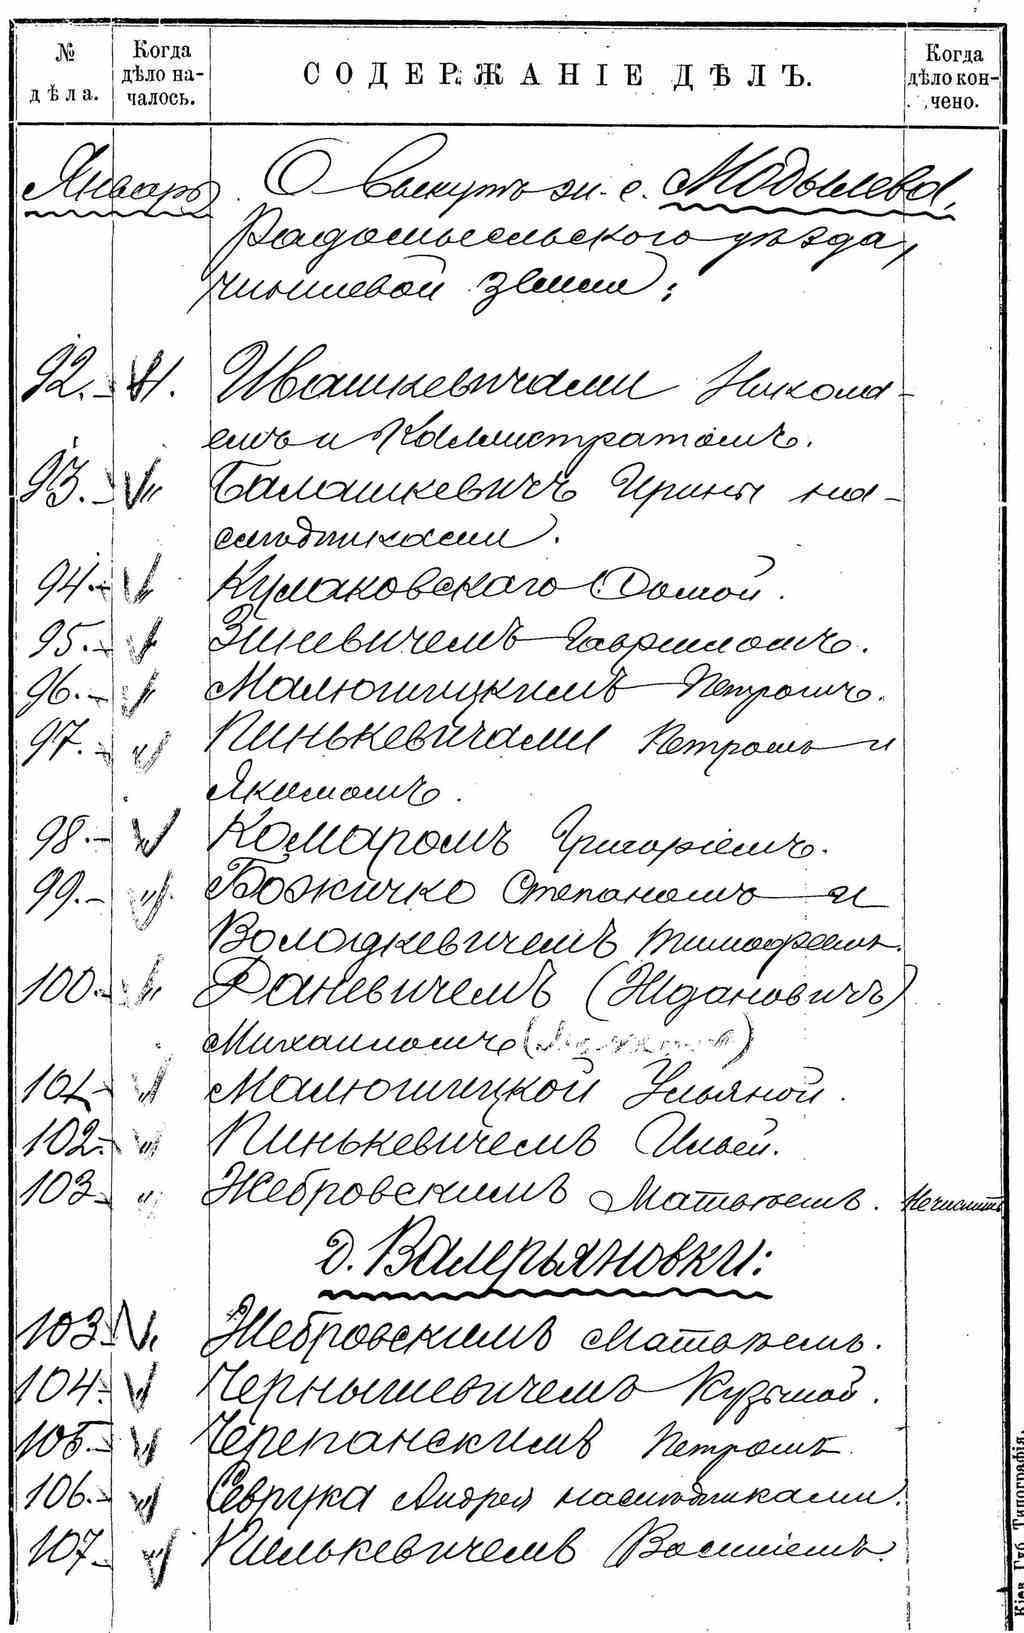 № дѣла.
Когда дѣло началось.
СОДЕРЖАНІЕ ДѢЛЪ.
Когда дѣло кончено.
Январь О выкупѣ жи. с. Модылева,
Радомысльского уѣзда,
чиншевой земли:
92.- 31. Ивашкевичами Никола-
емъ и Каллистратомъ.
93.- " Балашкевичъ Ирины на-
слѣдниками.
94.- " Кулаковскаго Домой.
95.- " Зиневичемъ Гавриломъ.
96.- " Малюшицкимъ Петромъ.
97.- " Пинькевичами Петромъ и
Якимомъ.
98.- " Комаромъ Григоріемъ.
99.- " Божичко Степаномъ и
Володкевичемъ Тимофеемъ.
100.- " Даневичемъ (Ждановичъ)
Михаиломъ
101- " Малюшицкой Ульяной.
102.- " Пинькевичемъ Ильей.
103- " Жебровскимъ Матвѣемъ.
д. Валерьяновки:
103- " Жебровскимъ Матвѣемъ.
104.- " Чернышевичемъ Кузьмой.
105.- " Черепанскимъ Петромъ.
106.- " Севрука Андрея наслѣдниками.
107- " Пилькевичемъ Василіемъ.
Кіев. Губ. Типографія.